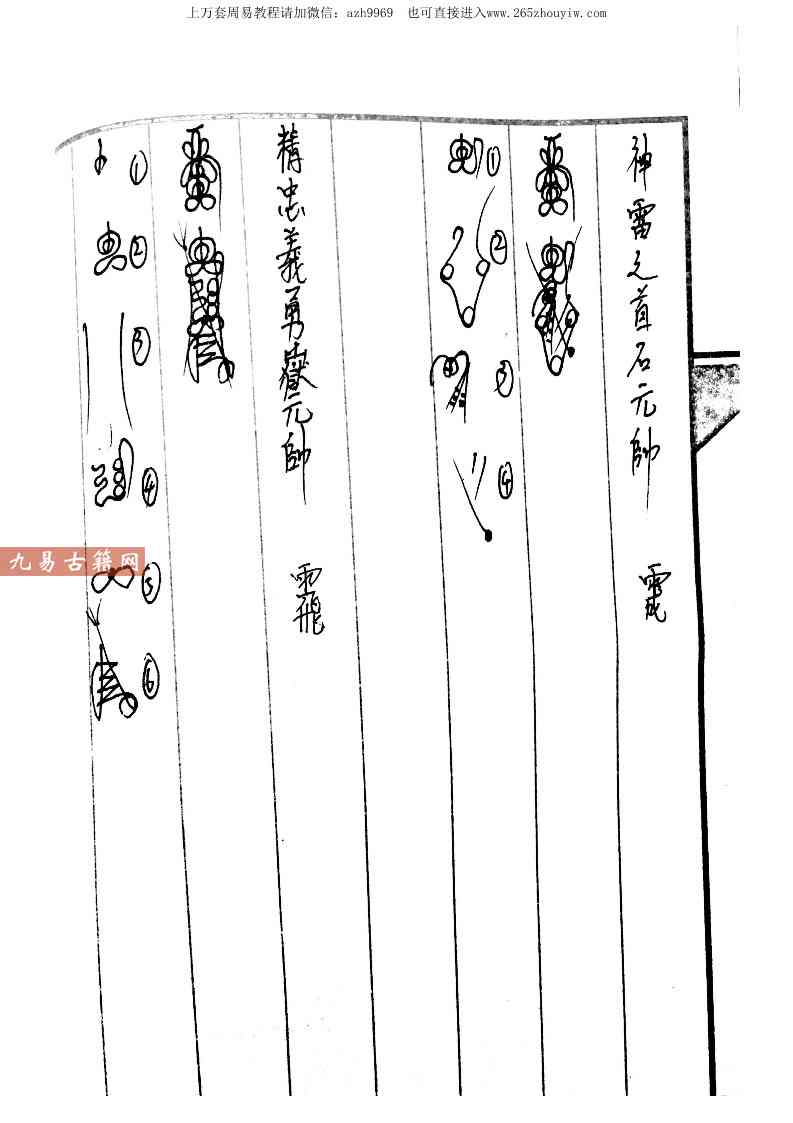 上万套周易教程请加微信：azh9969 也可直接进入www.265zhouyiw.com
神雷之首石元帥
①
②
③
④
精忠義勇嶽元帥
①
②
③
④
⑤
⑥
九易古籍网